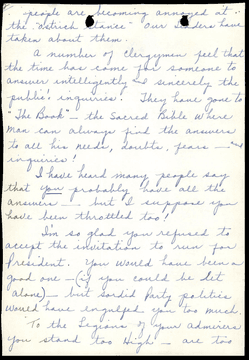 people are becoming annoyed at
the "ostrich stance" our leaders have
taken about them.
A number of Clergymen feel that
the time has come for someone to
answer intelligently and sincerely the
public's inquiries. They have gone to
"The Book" — the Sacred Bible where
man can always find the answers
to all his needs, doubts, fears — and
inquiries!
I have heard many people say
that you probably have all the
answers — but I suppose you
have been throttled too!
I'm so glad you refused to
accept the invitation to run for
President. You would have been a
good one — (if you could be let
alone) — but sordid Party politics
would have engulfed you too much.
To the Legions of your admirers
you stand too High — are too